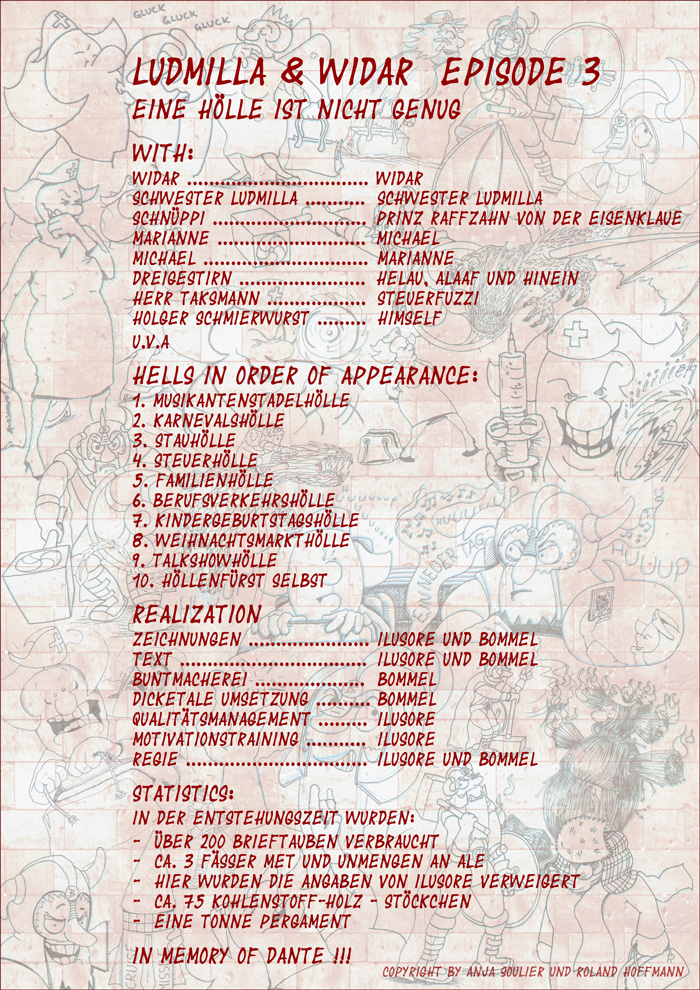 GLUCK
GLUCK
GLUCK
LUDMILLA & WIDAR EPISODE 3
EINE HÖLLE IST NICHT GENUG
WITH:
WIDAR ................................ WIDAR
SCHWESTER LUDMILLA ........... SCHWESTER LUDMILLA
SCHNÜPPI ........................... PRINZ RAFFZAHN VON DER EISENKLAUE
MARIANNE .......................... MICHAEL
MICHAEL ............................. MARIANNE
DREIGESTIRN ...................... HELAU, ALAAF UND HINEIN
HERR TAKSMANN ................. STEUERFUZZI
HOLGER SCHMIERWURST ......... HIMSELF
U.V.A
HELLS IN ORDER OF APPEARANCE:
1. MUSIKANTENSTADELHÖLLE
2. KARNEVALSHÖLLE
3. STAUHÖLLE
4. STEUERHÖLLE
5. FAMILIENHÖLLE
6. BERUFSVERKEHRSHÖLLE
7. KINDERGEBURTSTAGSHÖLLE
8. WEIHNACHTSMARKTHÖLLE
9. TALKSHOWHÖLLE
10. HÖLLENFÜRST SELBST
REALIZATION
ZEICHNUNGEN ..................... ILUSORE UND BOMMEL
TEXT ................................. ILUSORE UND BOMMEL
BUNTMACHEREI .................... BOMMEL
DICKETALE UMSETZUNG .......... BOMMEL
QUALITÄTSMANAGEMENT ......... ILUSORE
MOTIVATIONSTRAINING ........... ILUSORE
REGIE ................................ ILUSORE UND BOMMEL
STATISTICS:
IN DER ENTSTEHUNGSZEIT WURDEN:
- ÜBER 200 BRIEFTAUBEN VERBRAUCHT
- CA. 3 FÄSSER MET UND UNMENGEN AN ALE
- HIER WURDEN DIE ANGABEN VON ILUSORE VERWEIGERT
- CA. 75 KOHLENSTOFF-HOLZ - STÖCKCHEN
- EINE TONNE PERGAMENT
IN MEMORY OF DANTE !!!
COPYRIGHT BY ANJA SOULIER UND ROLAND HOFFMANN